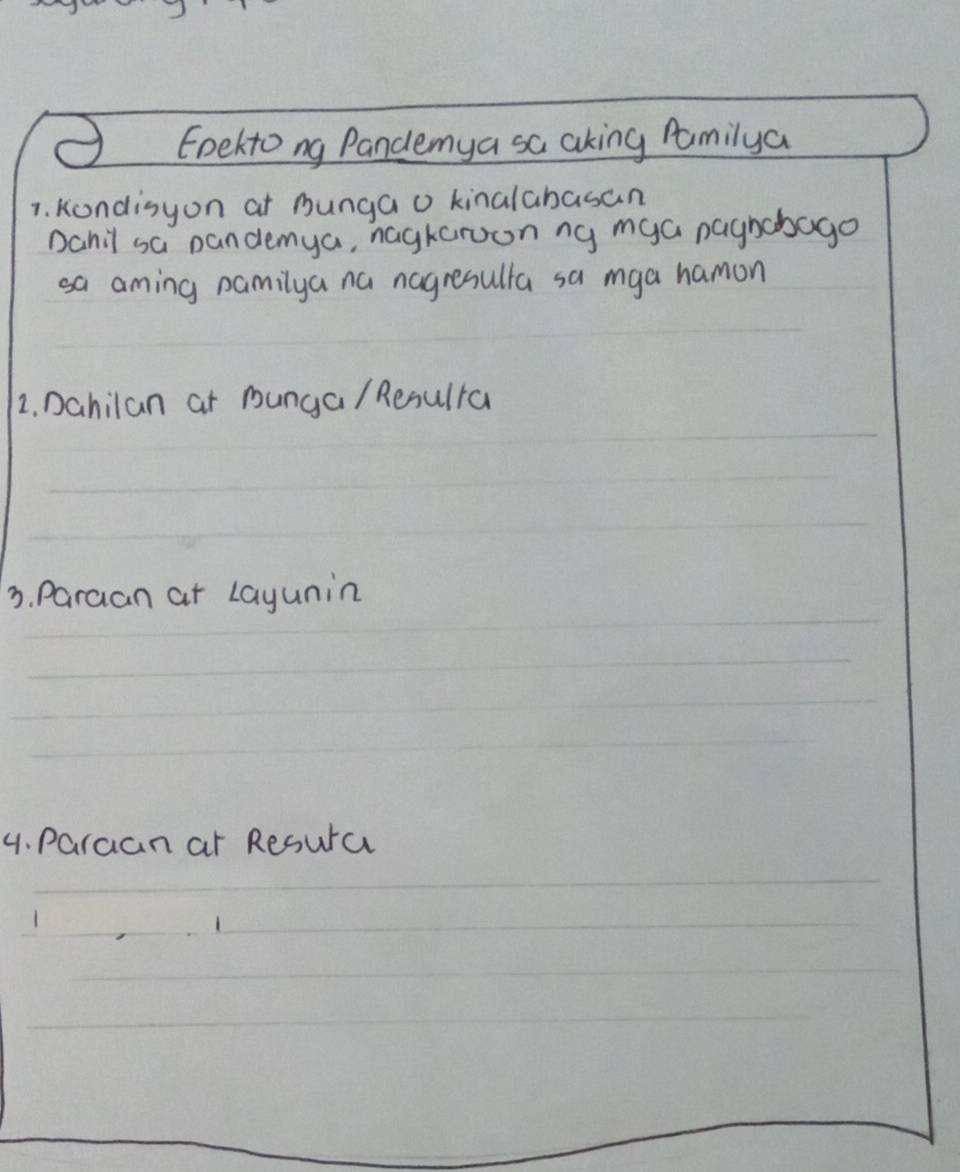 Epekto ng Pandemya sa aking Pamilya
1. Kondisyon at Bunga o kinalabasan
Dahil sa pandemya, nagkaroon ng mga pagbabago
sa aming pamilya na nagresulta sa mga hamon
2. Dahilan at Bunga/Resulta
3. Paraan at Layunin
4. Paraan at Resuta